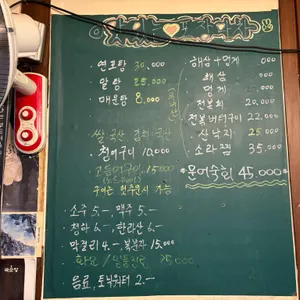 연포탕 30.000
알탕 25.000
매운탕 8.000
쌀 국산 김치 국산
청어구이 10.000
고등어구이 15.000
구이는 첫주문시 가능
소주 5.- 맥주 5.-
청하 6.- 한라산 6.-
막걸리 4.- 복분자 15.000
화요 / 일품진로 25.000
음료, 토닉워터 2.-
해삼+멍게 000
해삼 000
멍게
전복회 20.000
전복버터구이 22.000
산낙지 25.000
소라찜 35.000
*문어숙회 45.000*